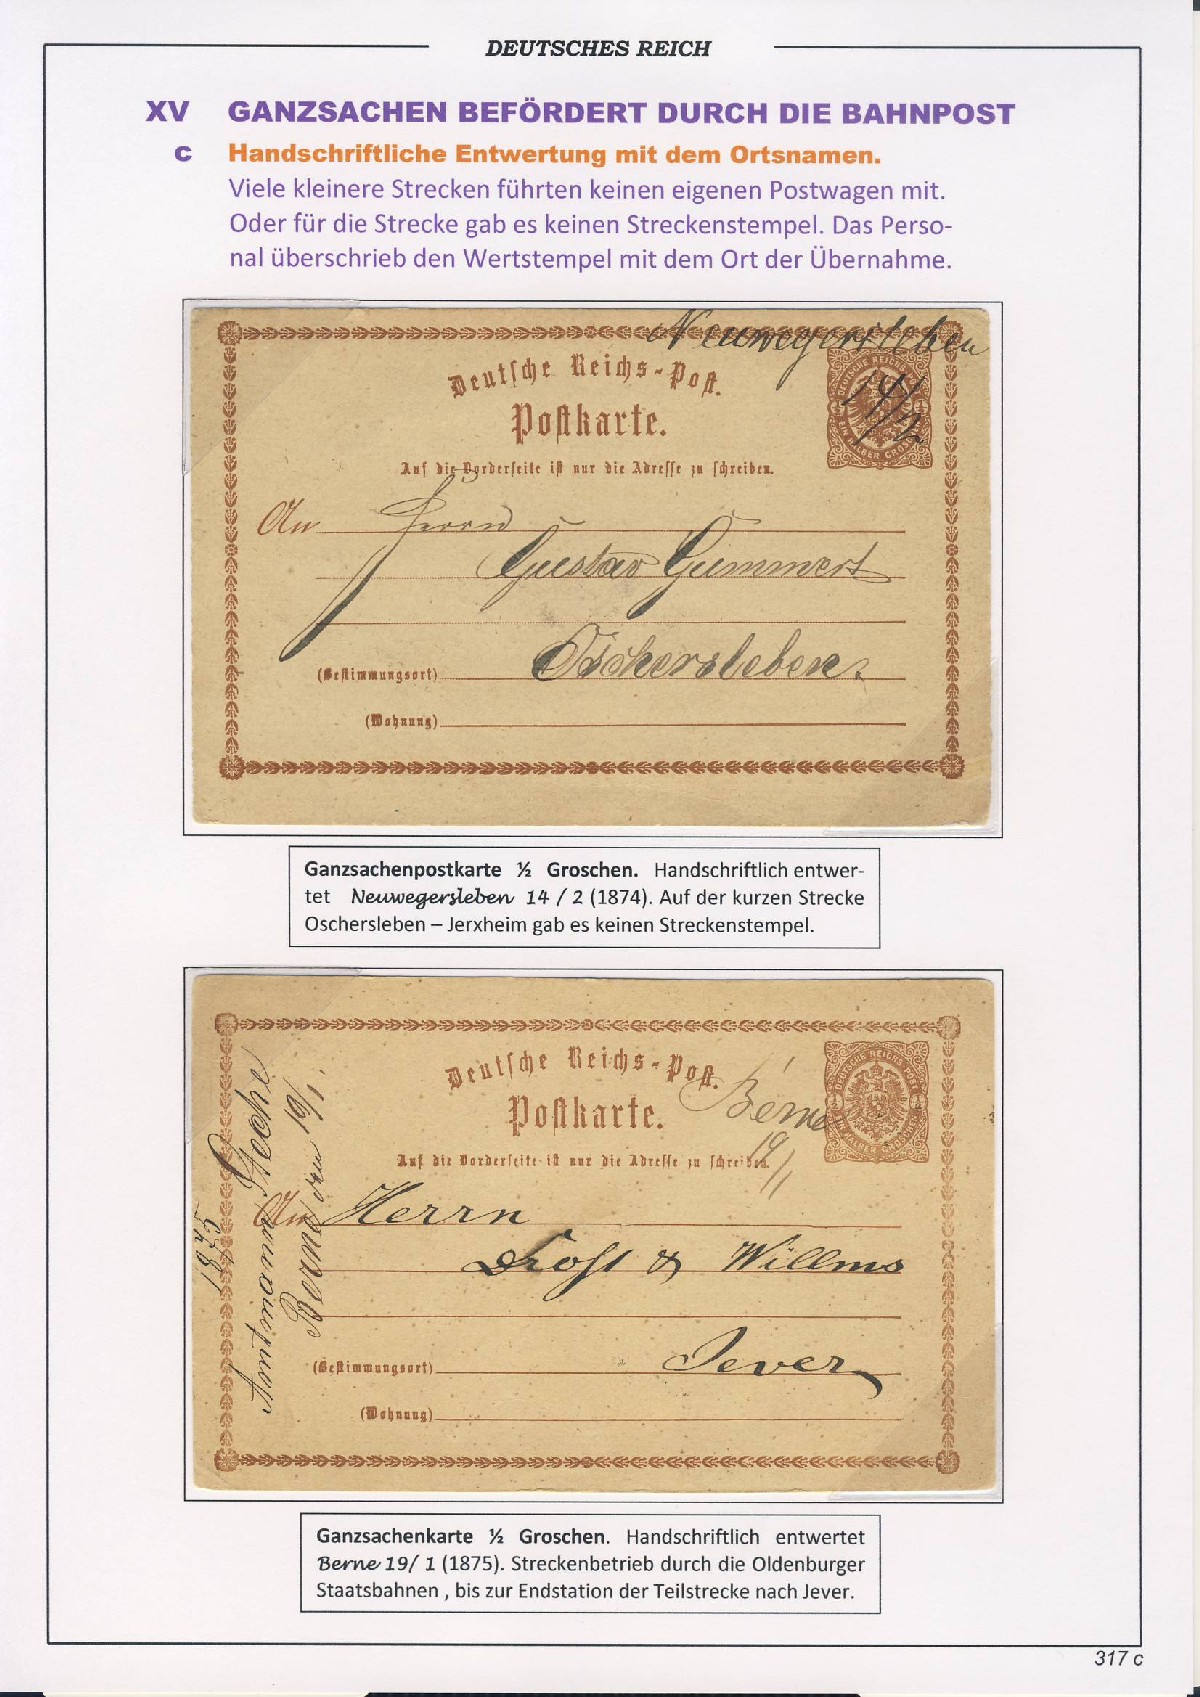 DEUTSCHES REICH
XV GANZSACHEN BEFÖRDERT DURCH DIE BAHNPOST
C Handschriftliche Entwertung mit dem Ortsnamen.
Viele kleinere Strecken führten keinen eigenen Postwagen mit.
Oder für die Strecke gab es keinen Streckenstempel. Das Perso-
nal überschrieb den Wertstempel mit dem Ort der Übernahme.
Neuwegersleben
14/2
DEUTSCHE REICHS POST
EIN HALBER GROSCHEN
Deutsche Reichs-Post.
Postkarte.
Auf die Vorderseite ist nur die Adresse zu schreiben.
An Herrn
Gustav Gummert
Oschersleben.
(Bestimmungsort)
(Wohnung)
Ganzsachenpostkarte ½ Groschen. Handschriftlich entwer-
tet Neuwegersleben 14 / 2 (1874). Auf der kurzen Strecke
Oschersleben – Jerxheim gab es keinen Streckenstempel.
Deutsche Reichs-Post.
Postkarte.
Auf die Vorderseite ist nur die Adresse zu schreiben.
Berne
19/1
DEUTSCHE REICHS POST
EIN HALBER GROSCHEN
1875
Amtmann
Berne den 19/1.
An Herrn
& Willms
Jever
(Bestimmungsort)
(Wohnung)
Ganzsachenkarte ½ Groschen. Handschriftlich entwertet
Berne 19/ 1 (1875). Streckenbetrieb durch die Oldenburger
Staatsbahnen , bis zur Endstation der Teilstrecke nach Jever.
317 c